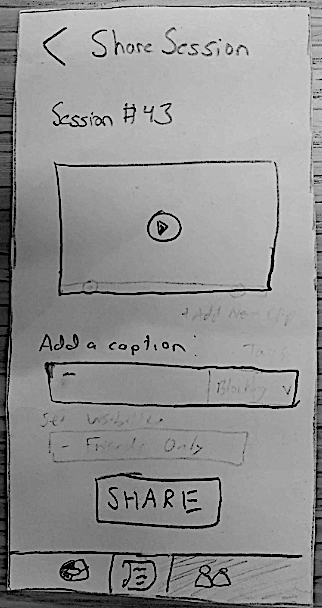 Share Session
Session #43
+ Add New Clip
Add a caption:
Tags
Set visibility
- Friends Only
SHARE